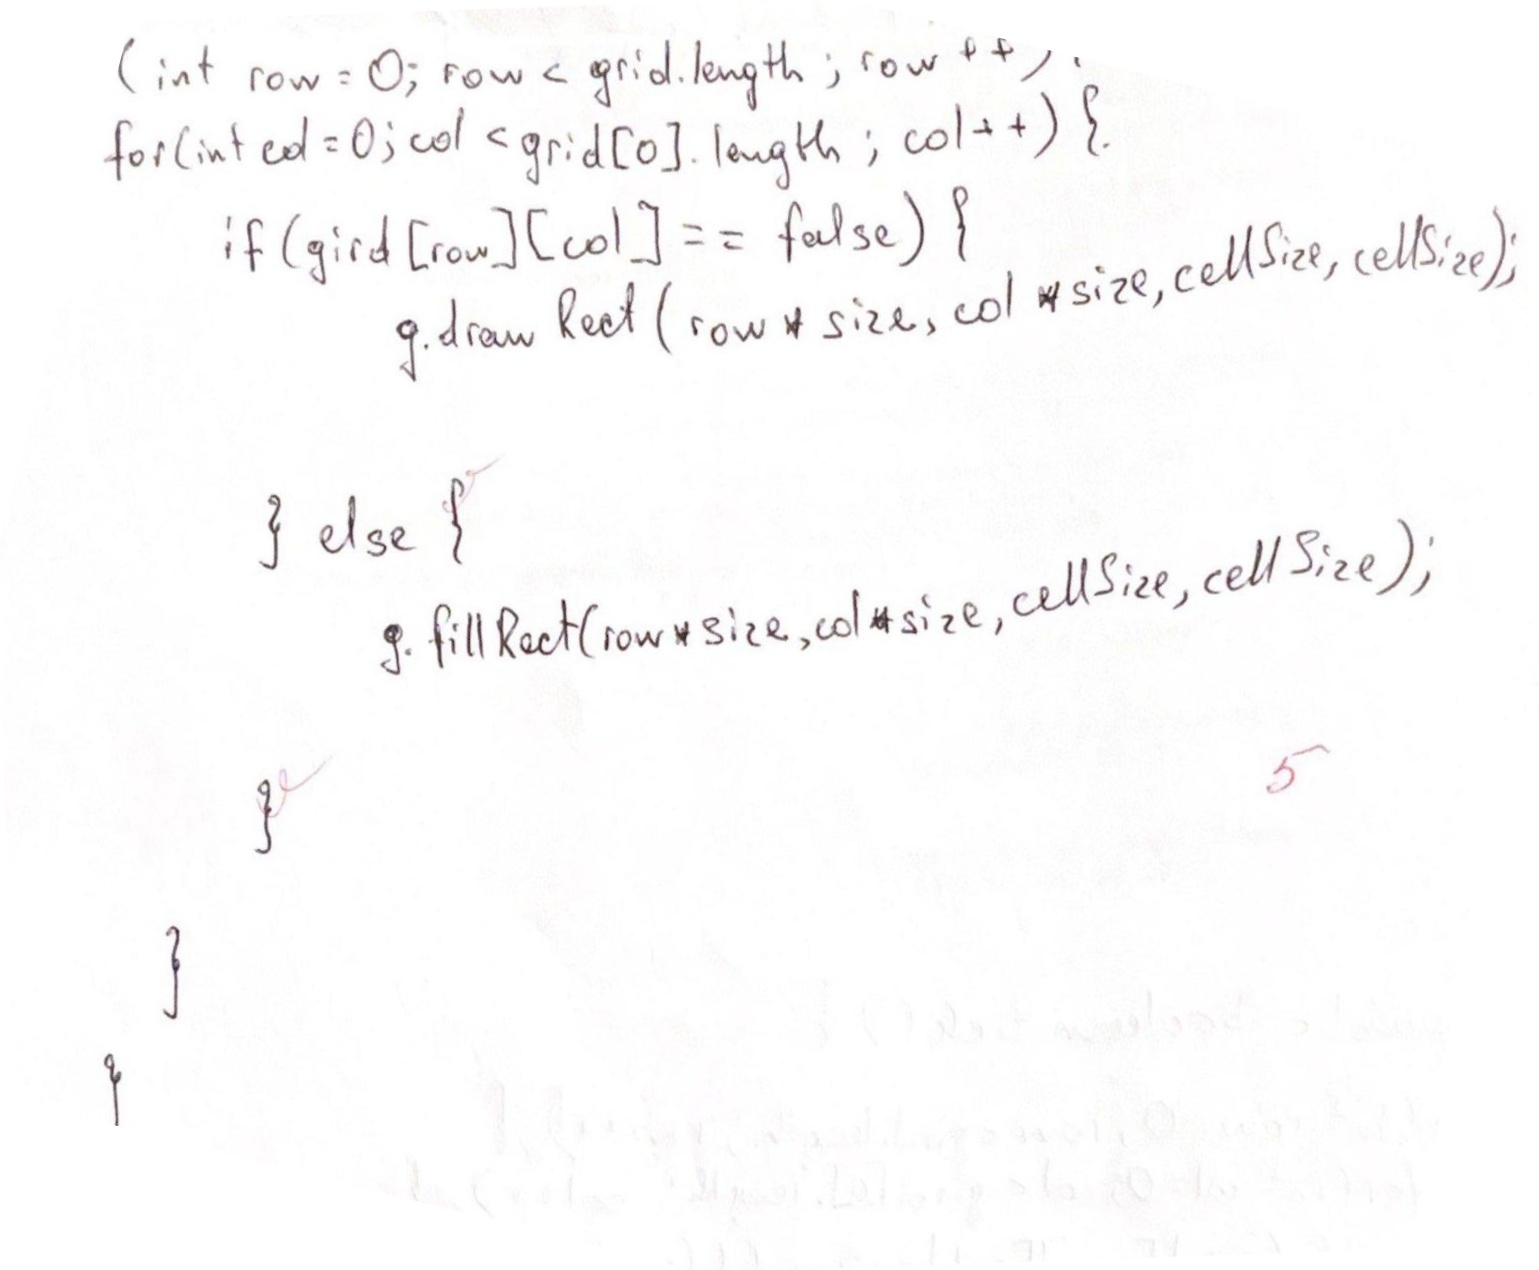 (int row = 0; row < grid.length; row ++)
for(int col = 0; col < grid[0].length; col++) {
if (gird [row][col] == false) {
g.drawRect( row * size, col * size, cellSize, cellSize);
} else {
g. fillRect(row * size, col * size, cellSize, cellSize);
5
}
}
}